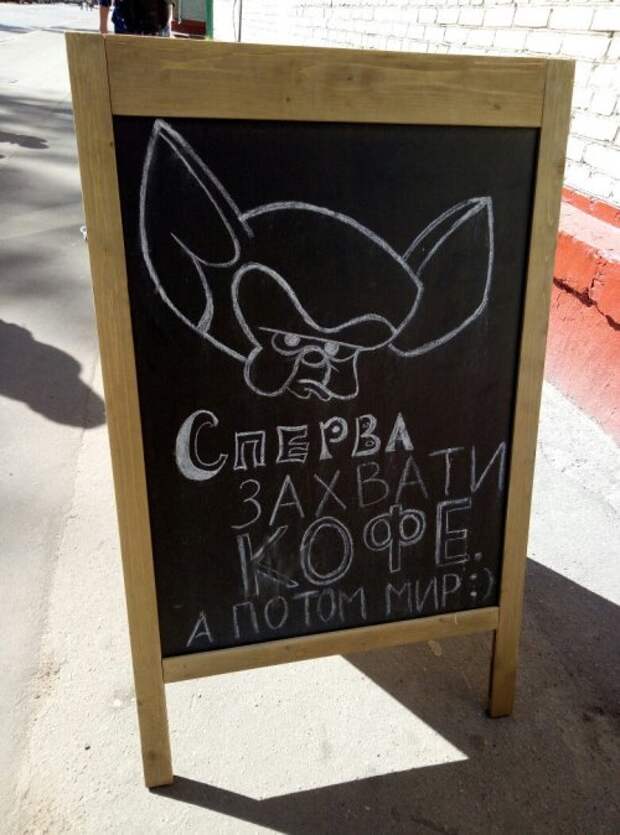 СПЕРВА
ЗАХВАТИ
КОФЕ.
А ПОТОМ МИР:)